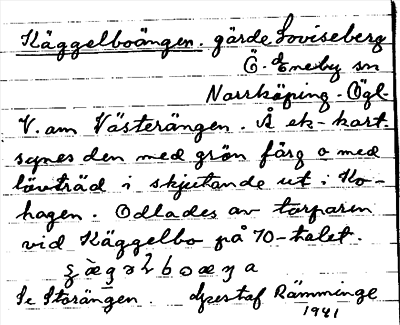 Käggelboängen. gärde Loviseberg
Ö. Eneby sn
Norrköping. Ögl
V. om Västerängen. Å ek-kart.
synes den med grön färg o med
lövträd i skjutande ut i Ko-
hagen. Odlades av torparen
vid Käggelbo på 70-talet.
Se Storängen. Gustaf Rämminge
1941